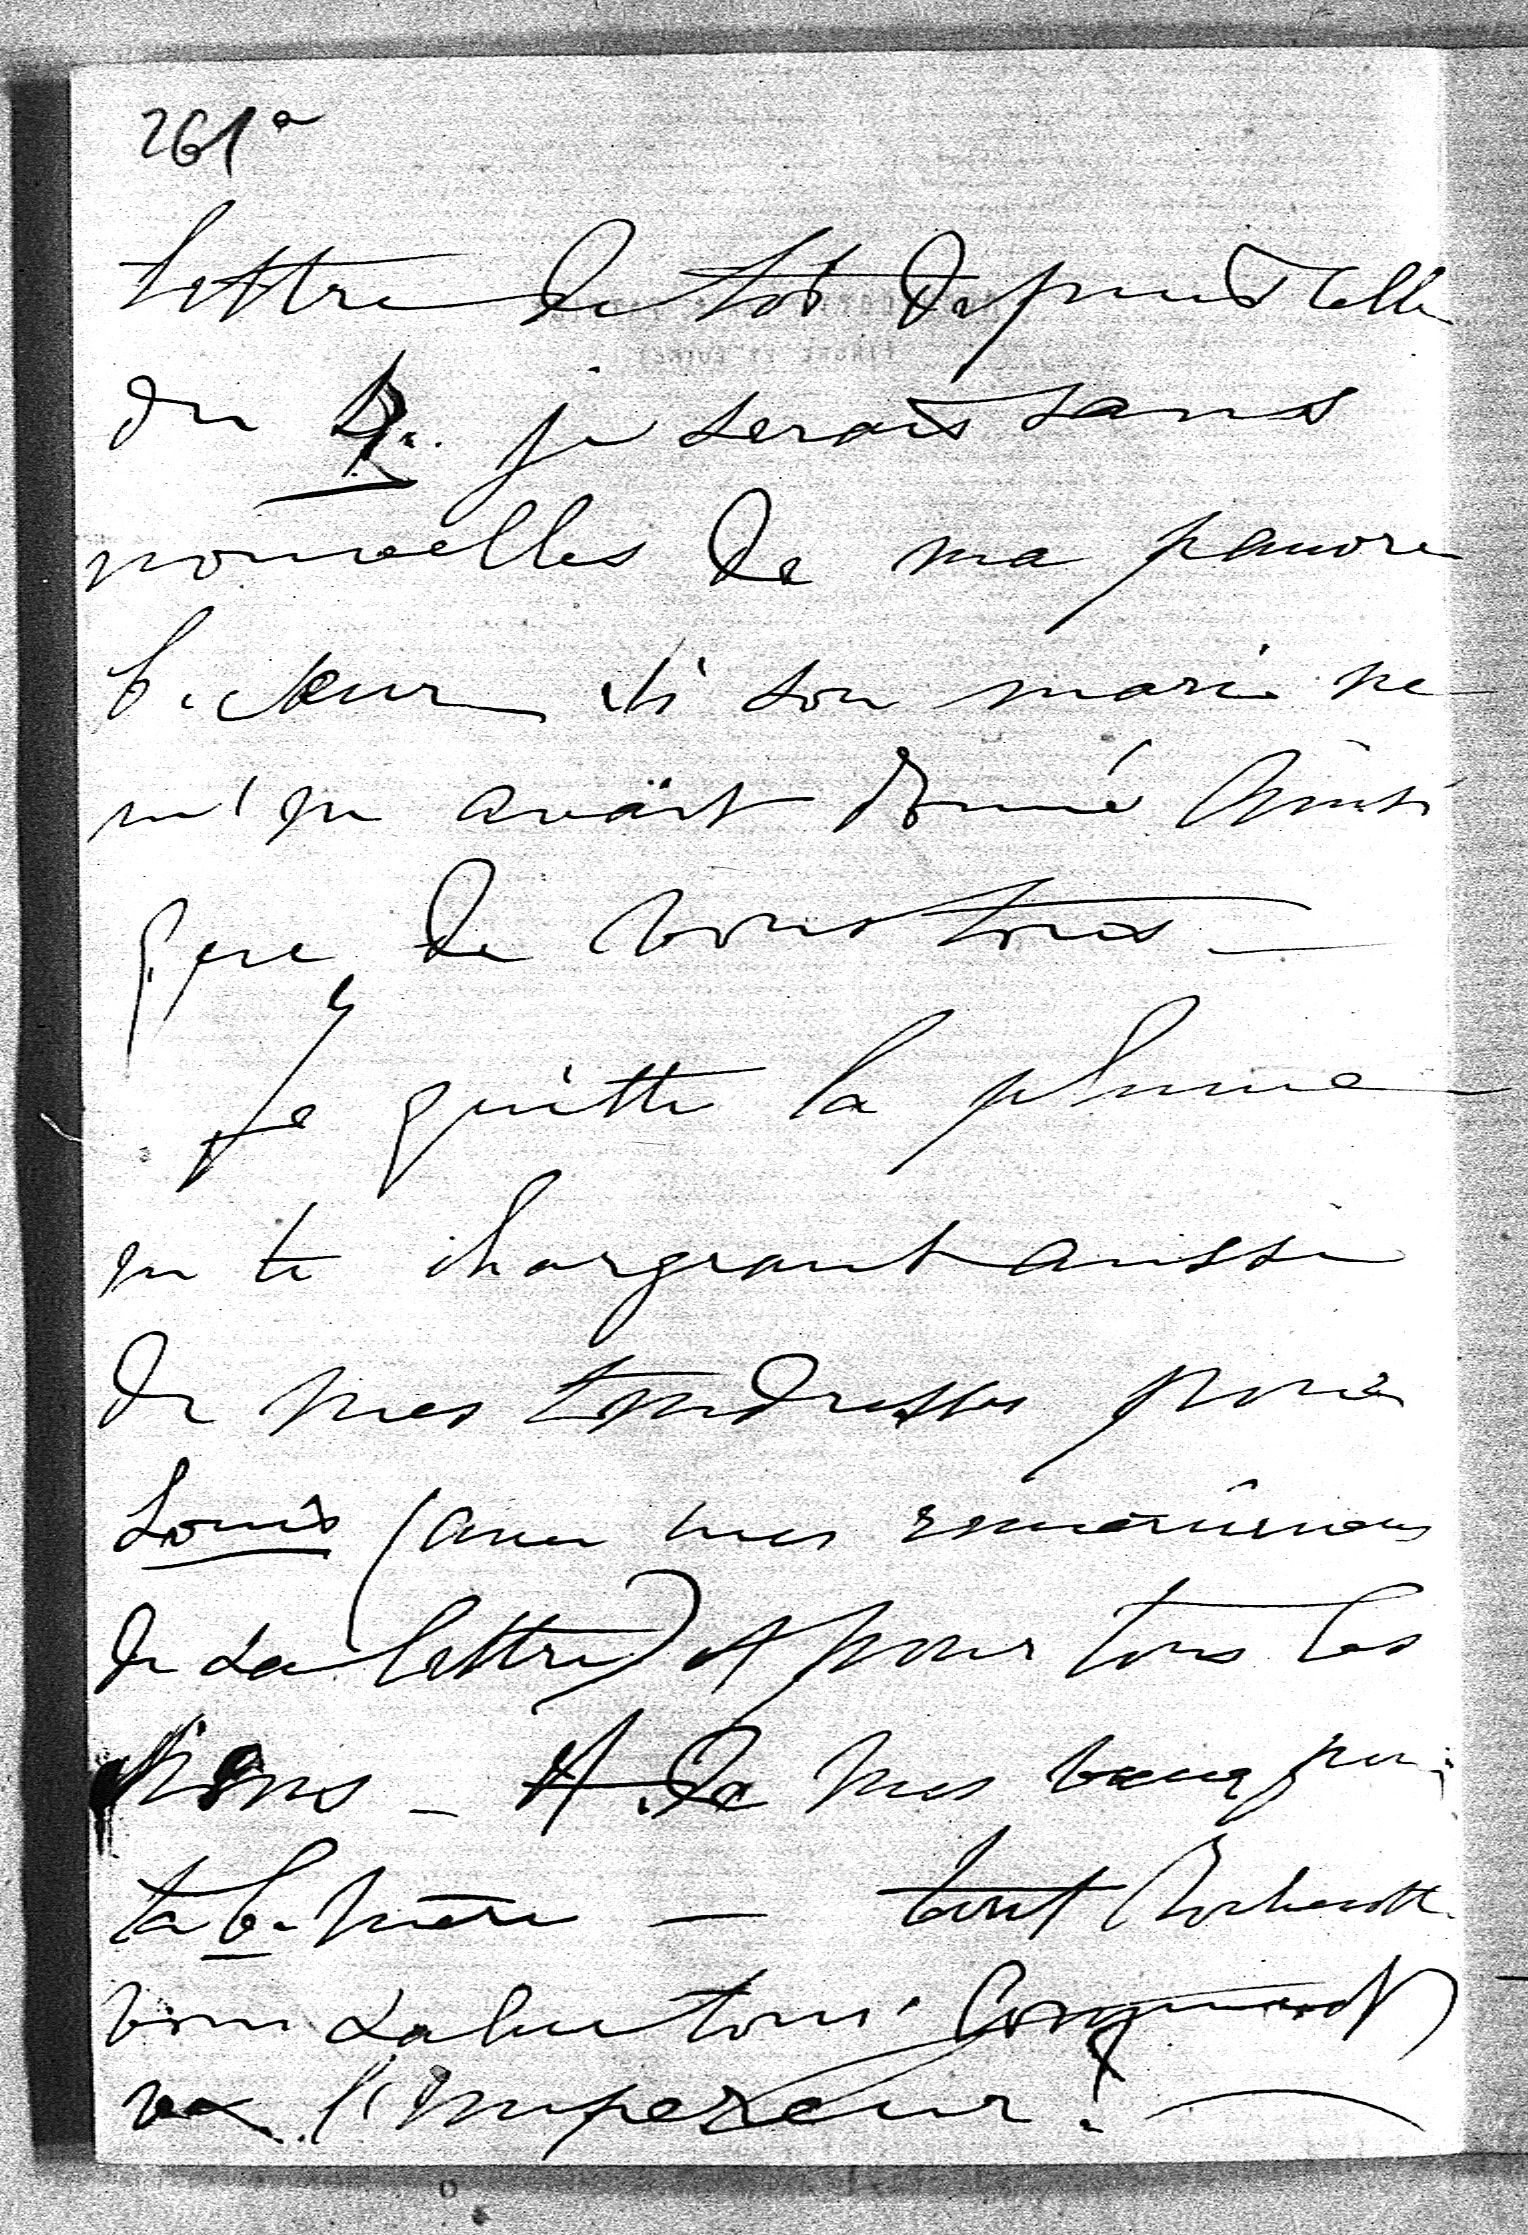 261a
lettre de toi depuis celle
du je serais sans
nouvelles de ma pauvre
b. sœur si son mari ne
m'en avait donné ainsi
que de vous tous —
Je quitte la plume
en te chargeant aussi
de mes tendresses pour
Louis (avec mes remerciemens
de sa lettre) et pour tous les
tiens — et de mes vœux pr
ta b. mère — tout
vous salue tous. Comment
va l'Empereur? —